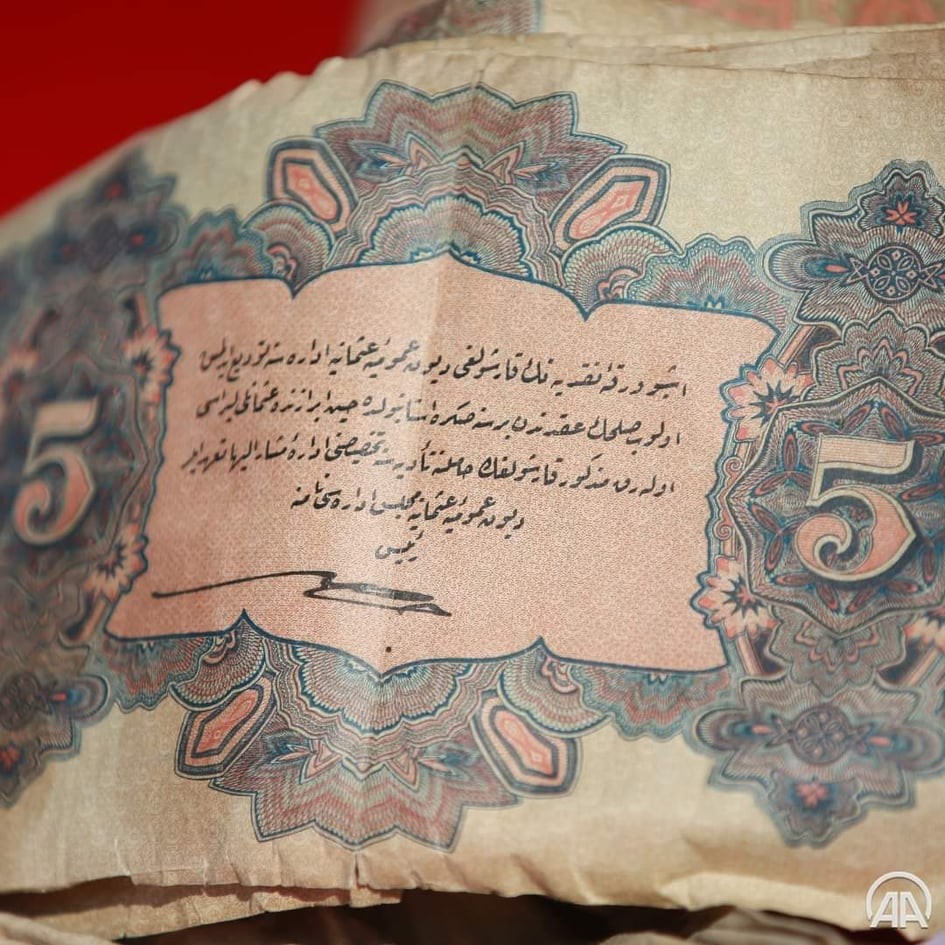 اشبو ورقهٔ نقدیه نك قارشولغی دیون عمومیهٔ عثمانیه اداره سنه تودیع ایدلمش
اولوب صلحك عقدندن بر سنه صكره استانبولده حین ابرازنده عثمانلی لیراسی
اوله رق مذكور قارشولغك حاملنه تأدیه سنه تخصیصنی ادارهٔ مشار الیها تعهد ایدر
دیون عمومیهٔ عثمانیه مجلس اداره سی نامنه
رئیسی
5
5
AA